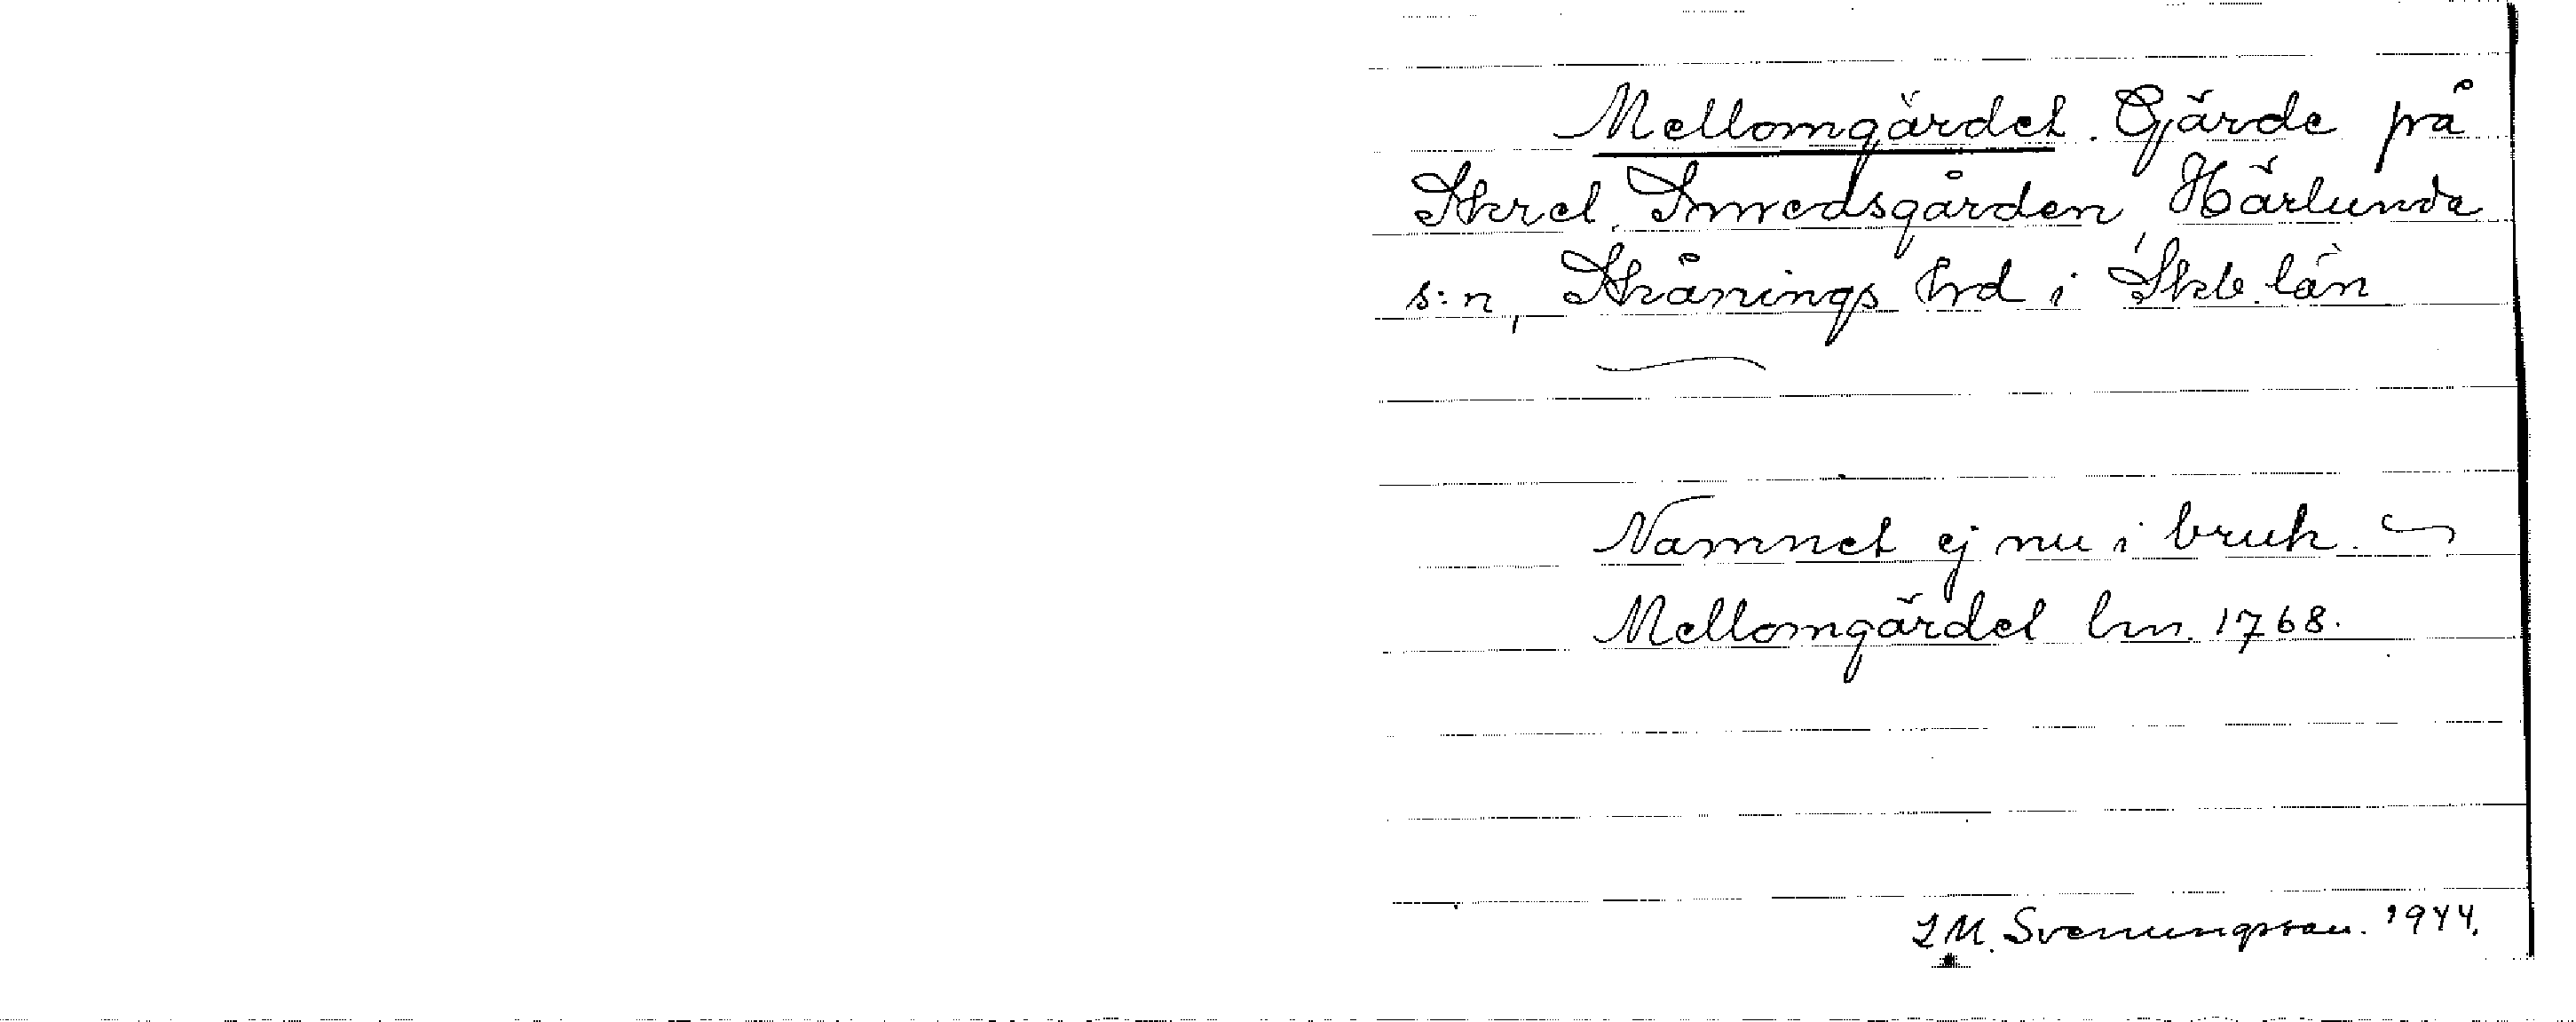 Mellomgärdet. Gärde på
Skrel Smedsgården, Härlunda
s:n, Skånings hrd i Skb. län
Namnet ej nu i bruk.
Mellomgärdet lm. 1768.
L M. Svenungsson. 1944.